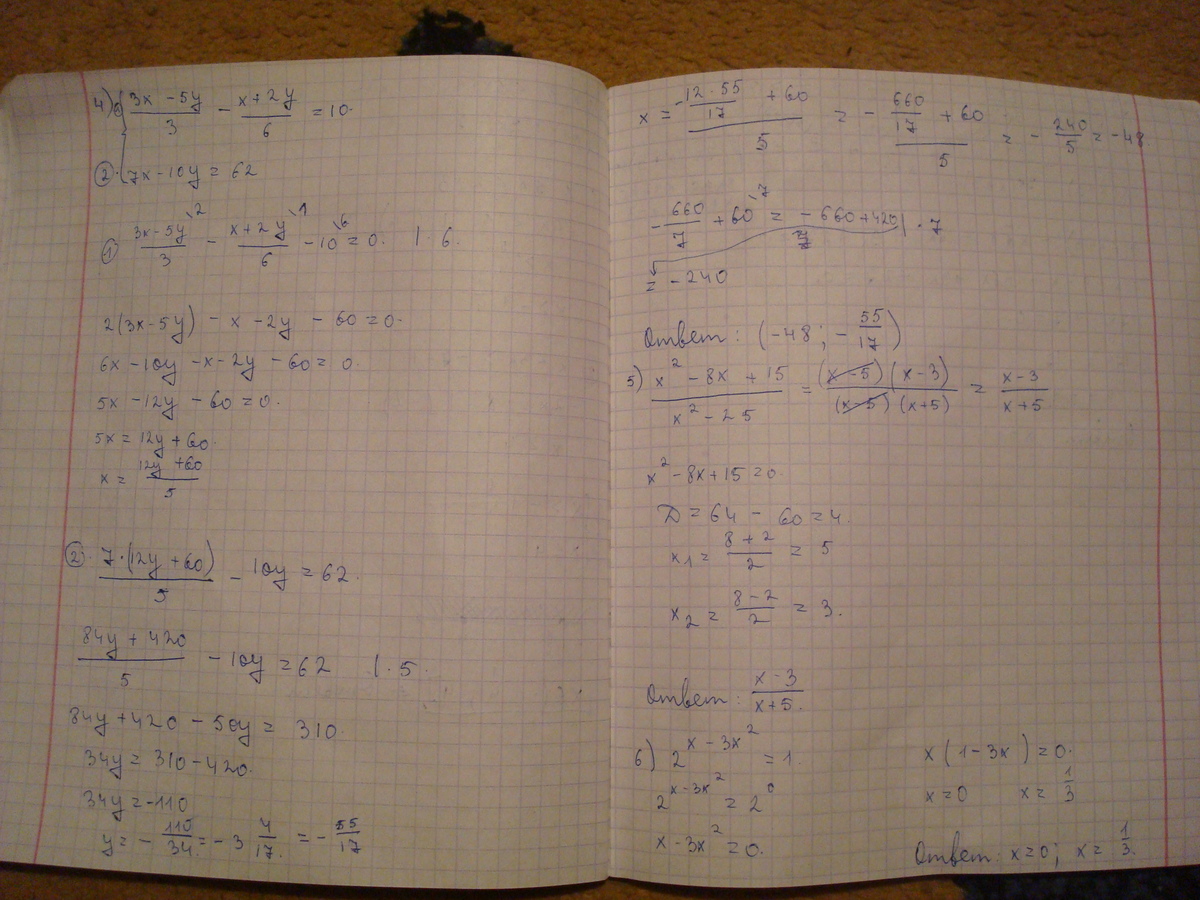 4) ① { (3x - 5y)/3 - (x + 2y)/6 = 10.
② 7x - 10y = 62
① (3x - 5y)/3 ^{\2} - (x + 2y)/6 ^{\1} - 10 ^{\6} = 0. | · 6.
2(3x - 5y) - x - 2y - 60 = 0.
6x - 10y - x - 2y - 60 = 0.
5x - 12y - 60 = 0.
5x = 12y + 60.
x = (12y + 60)/5
②. 7·(12y + 60)/5 - 10y = 62.
(84y + 420)/5 - 10y = 62 | · 5.
84y + 420 - 50y = 310.
34y = 310 - 420.
34y = -110
y = - 110/34. = -3 4/17. = - 55/17
x = (-(12·55)/17 + 60)/5 = (- 660/17 + 60)/5 = - 240/5 = -48
- 660/7 + 60 ^{\7} = (-660 + 420)/7 | · 7
= -240
Ответ: (-48; - 55/17)
5) (x² - 8x + 15)/(x² - 25) = ((x - 5)(x - 3))/((x - 5)(x + 5)) = (x - 3)/(x + 5)
x² - 8x + 15 = 0.
D = 64 - 60 = 4.
x₁ = (8 + 2)/2 = 5
x₂ = (8 - 2)/2 = 3.
Ответ: (x - 3)/(x + 5).
6) 2^{x - 3x²} = 1.
2^{x - 3x²} = 2⁰
x - 3x² = 0.
x(1 - 3x) = 0.
x = 0 x = 1/3
Ответ: x = 0; x = 1/3.